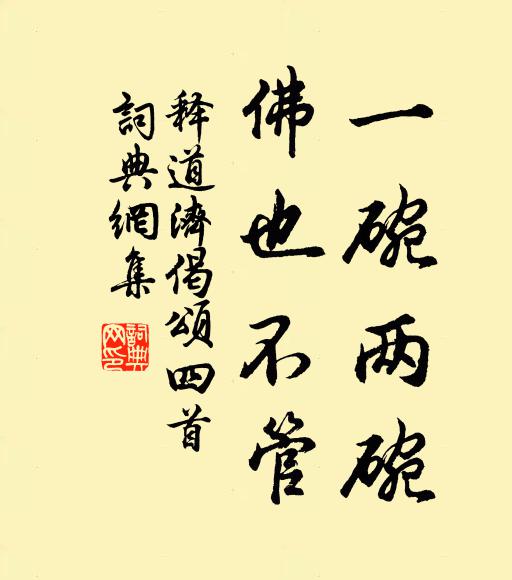 一碗两碗
佛也不管
释道濟偈頌四首
詞典網集
詞典网印